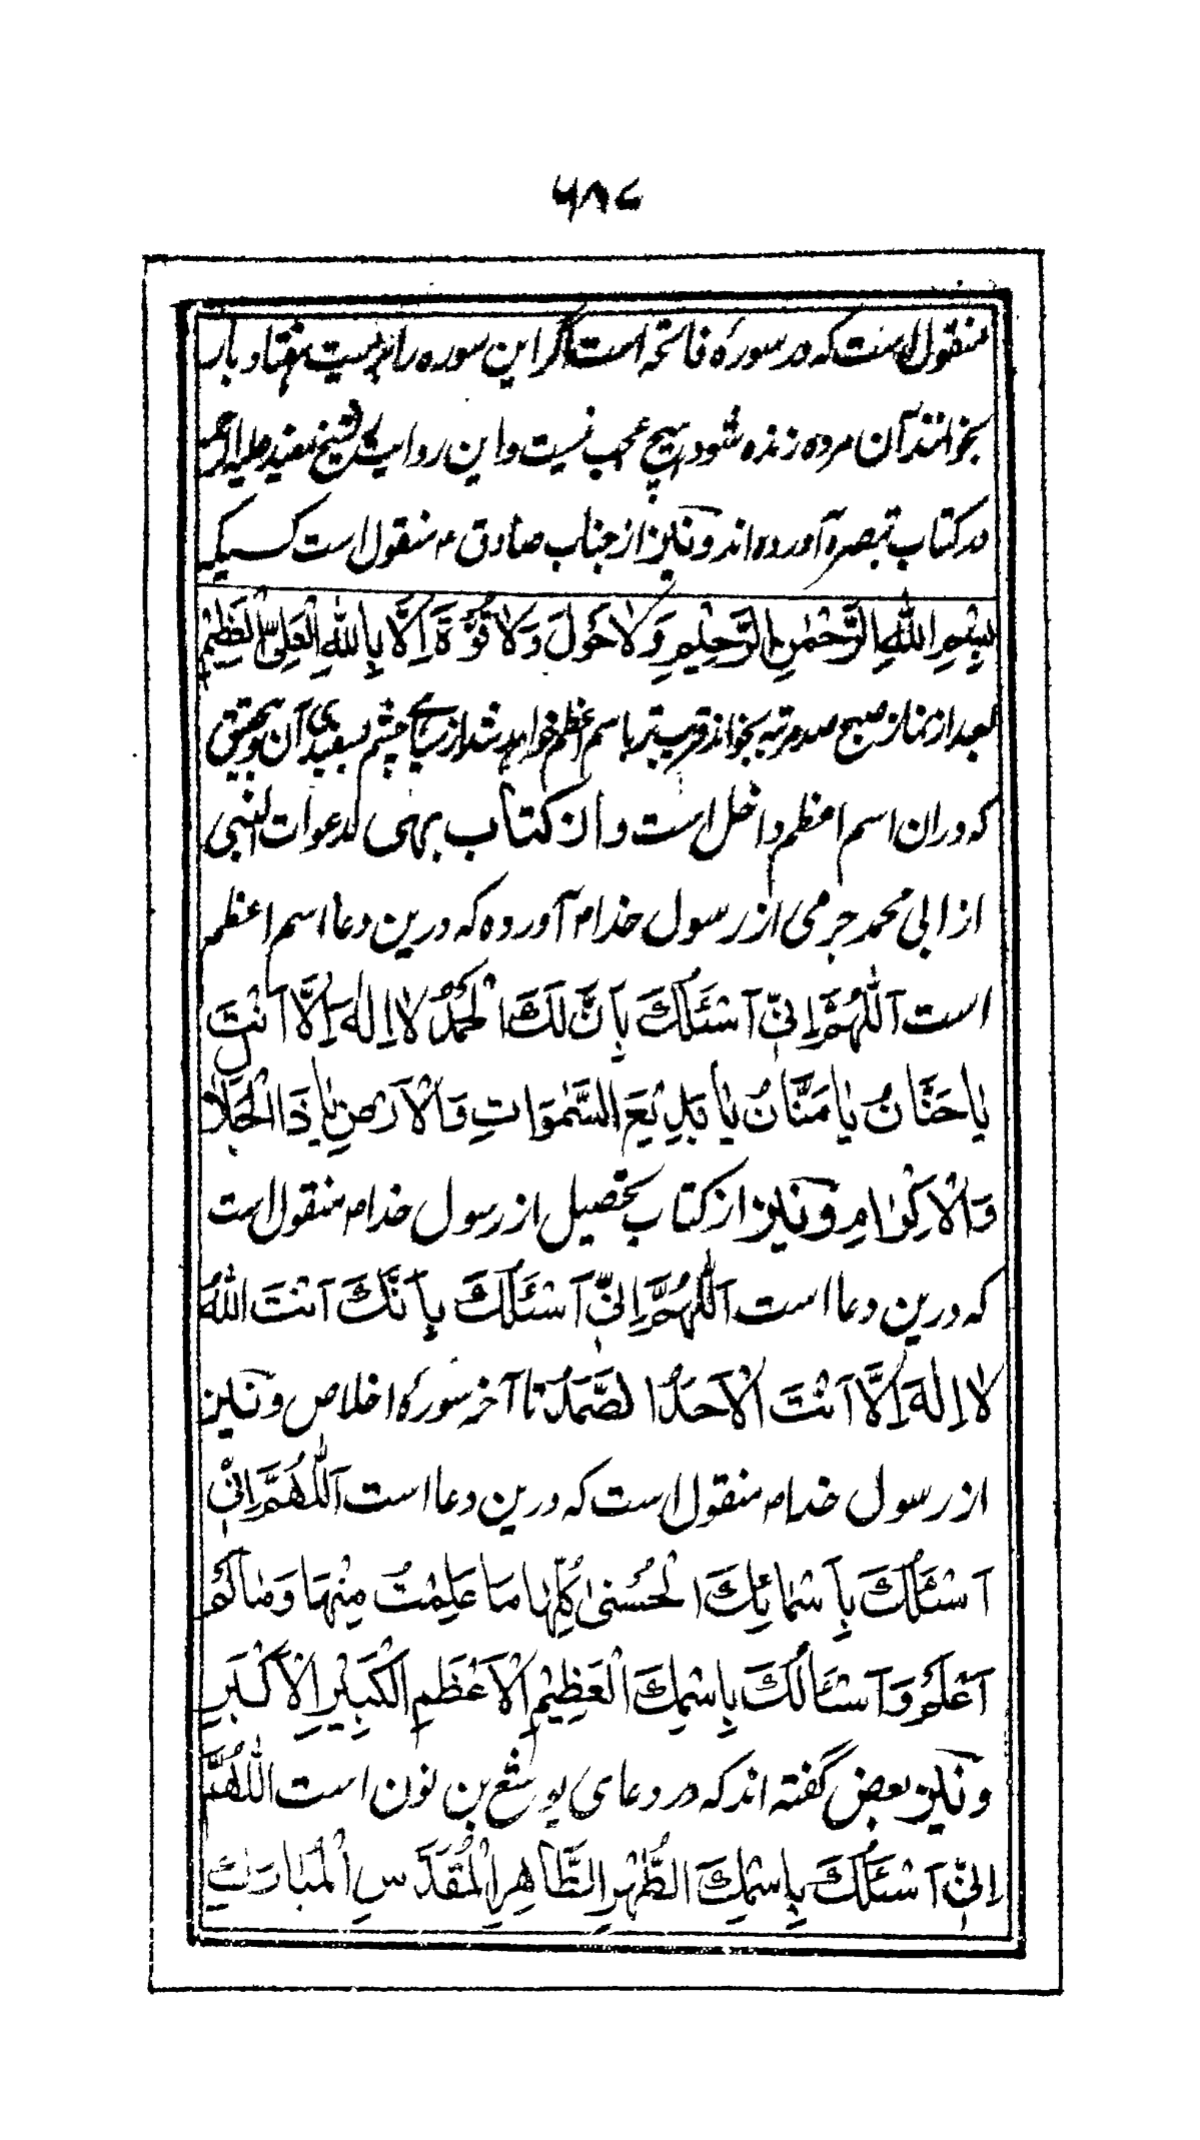 ۶۸۷
منقول است که در سورهٔ فاتحه است اگر این سوره را بر میت هفتاد بار
بخوانند آن مرده زنده شود هیچ عجب نیست و این روایت شیخ مفید علیه الرحمه
در کتاب تبصره آورده اند ونیز از جناب صادق ۴ منقول است کسیکه
بِسْمِ اللّٰهِ الرَّحْمٰنِ الرَّحِیْمِ وَلَا حَوْلَ وَلَا قُوَّةَ اِلَّا بِاللّٰهِ الْعَلِیِّ الْعَظِیْمِ
بعد از نماز صبح صد مرتبه بخواند قریب تر باسم اعظم خواهد شد از سیاهی چشم بسفیدی آن وبتحقیق
که دران اسم اعظم داخل است و از کتاب بهی الدعوات لنبی
از ابی محمد جرمی از رسول خدام آورده که درین دعا اسم اعظم
است اَللّٰهُمَّ اِنِّیْ اَسْئَلُكَ بِاَنَّ لَكَ الْحَمْدُ لَا اِلٰهَ اِلَّا اَنْتَ
یَا حَنَّانُ یَا مَنَّانُ یَا بَدِیْعَ السَّمٰوَاتِ وَالْاَرْضِ یَا ذَا الْجَلَالِ
وَالْاِکْرَامِ ونیز از کتاب تحصیل از رسول خدام منقول است
که درین دعا است اَللّٰهُمَّ اِنِّیْ اَسْئَلُكَ بِاَنَّكَ اَنْتَ اللّٰهُ
لَا اِلٰهَ اِلَّا اَنْتَ الْاَحَدُ الصَّمَدُ تا آخر سورهٔ اخلاص ونیز
از رسول خدام منقول است که درین دعا است اَللّٰهُمَّ اِنِّیْ
اَسْئَلُكَ بِاَسْمَائِكَ الْحُسْنٰی کُلِّهَا مَا عَلِمْتُ مِنْهَا وَمَا لَمْ
اَعْلَمْ وَاَسْئَالُكَ بِاِسْمِكَ الْعَظِیْمِ الْاَعْظَمِ الْکَبِیْرِ الْاَکْبَرِ
ونیز بعض گفته اند که در دعای یوشع بن نون است اَللّٰهُمَّ
اِنِّیْ اَسْئَلُكَ بِاِسْمِكَ الطُّهْرِ الطَّاهِرِ الْمُقَدَّسِ الْمُبَارَكِ